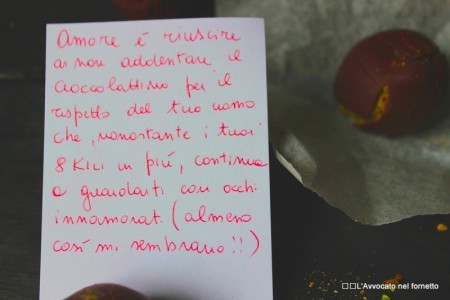 Amore é riuscire
a non addentare il
cioccolattino per il
rispetto del tuo uomo
che, nonostante i tuoi
8 KILI in piú, continua
a guardarti con occhi
innamorati (almeno
così mi sembrano!!)
L'Avvocato nel fornetto